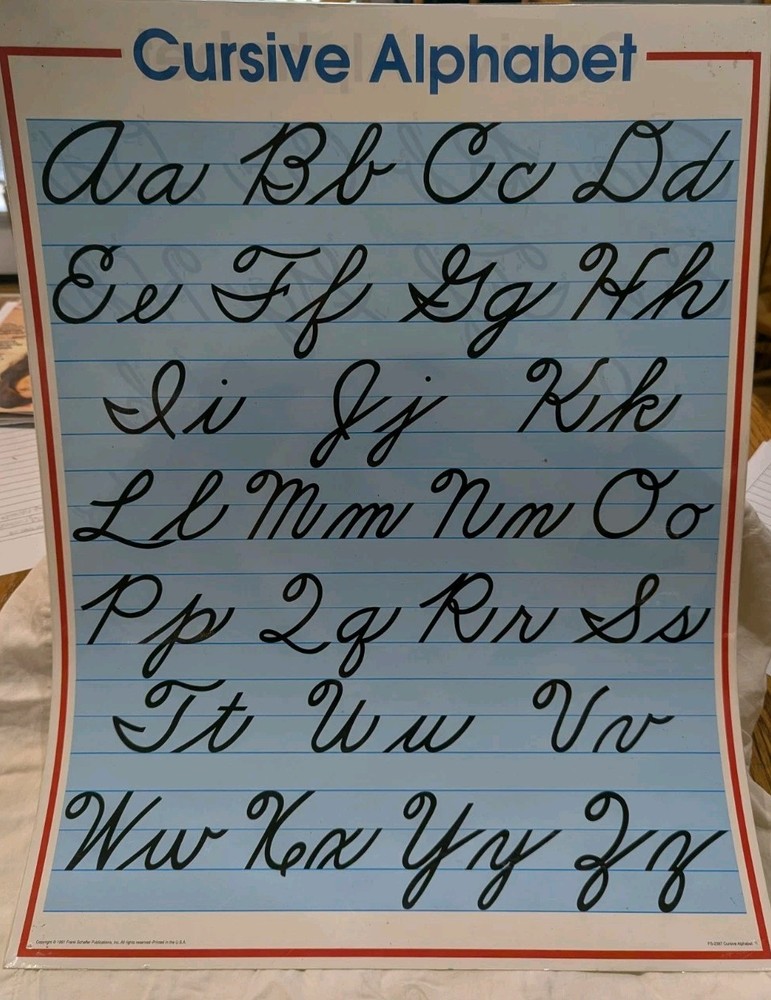 Cursive Alphabet
Aa Bb Cc Dd
Ee Ff Gg Hh
Ii Jj Kk
Ll Mm Nn Oo
Pp Qq Rr Ss
Tt Uu Vv
Ww Xx Yy Zz
Copyright © 1987 Frank Schaffer Publications, Inc. All rights reserved-Printed in the U.S.A.
Cursive Alphabet